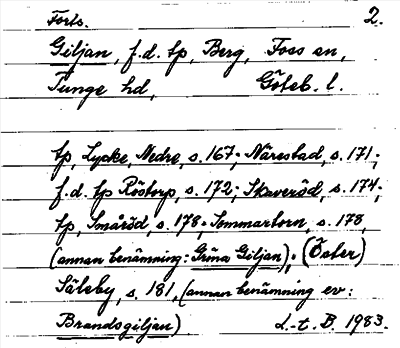 Forts. 2.
Giljan, f.d. tp, Berg, Foss sn,
Tunge hd, Göteb. l.
tp, Lycke, Nedre, s. 167; Närestad, s. 171;
f.d. tp Röstorp, s. 172; Skaveröd, s. 174;
tp, Smäröd, s. 178; Sommartorn, s. 178,
(annan benämning: Gröna Giljan); (Öster)
Säleby, s. 181, (annan benämning ev:
Brandsgiljan) L-t. B. 1983.